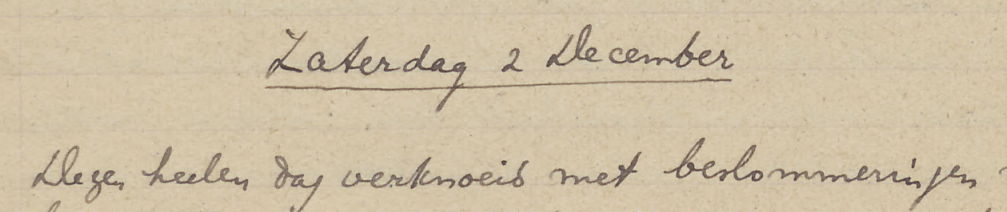 Zaterdag 2 December
Dezen heelen dag verknoeid met beslommeringen